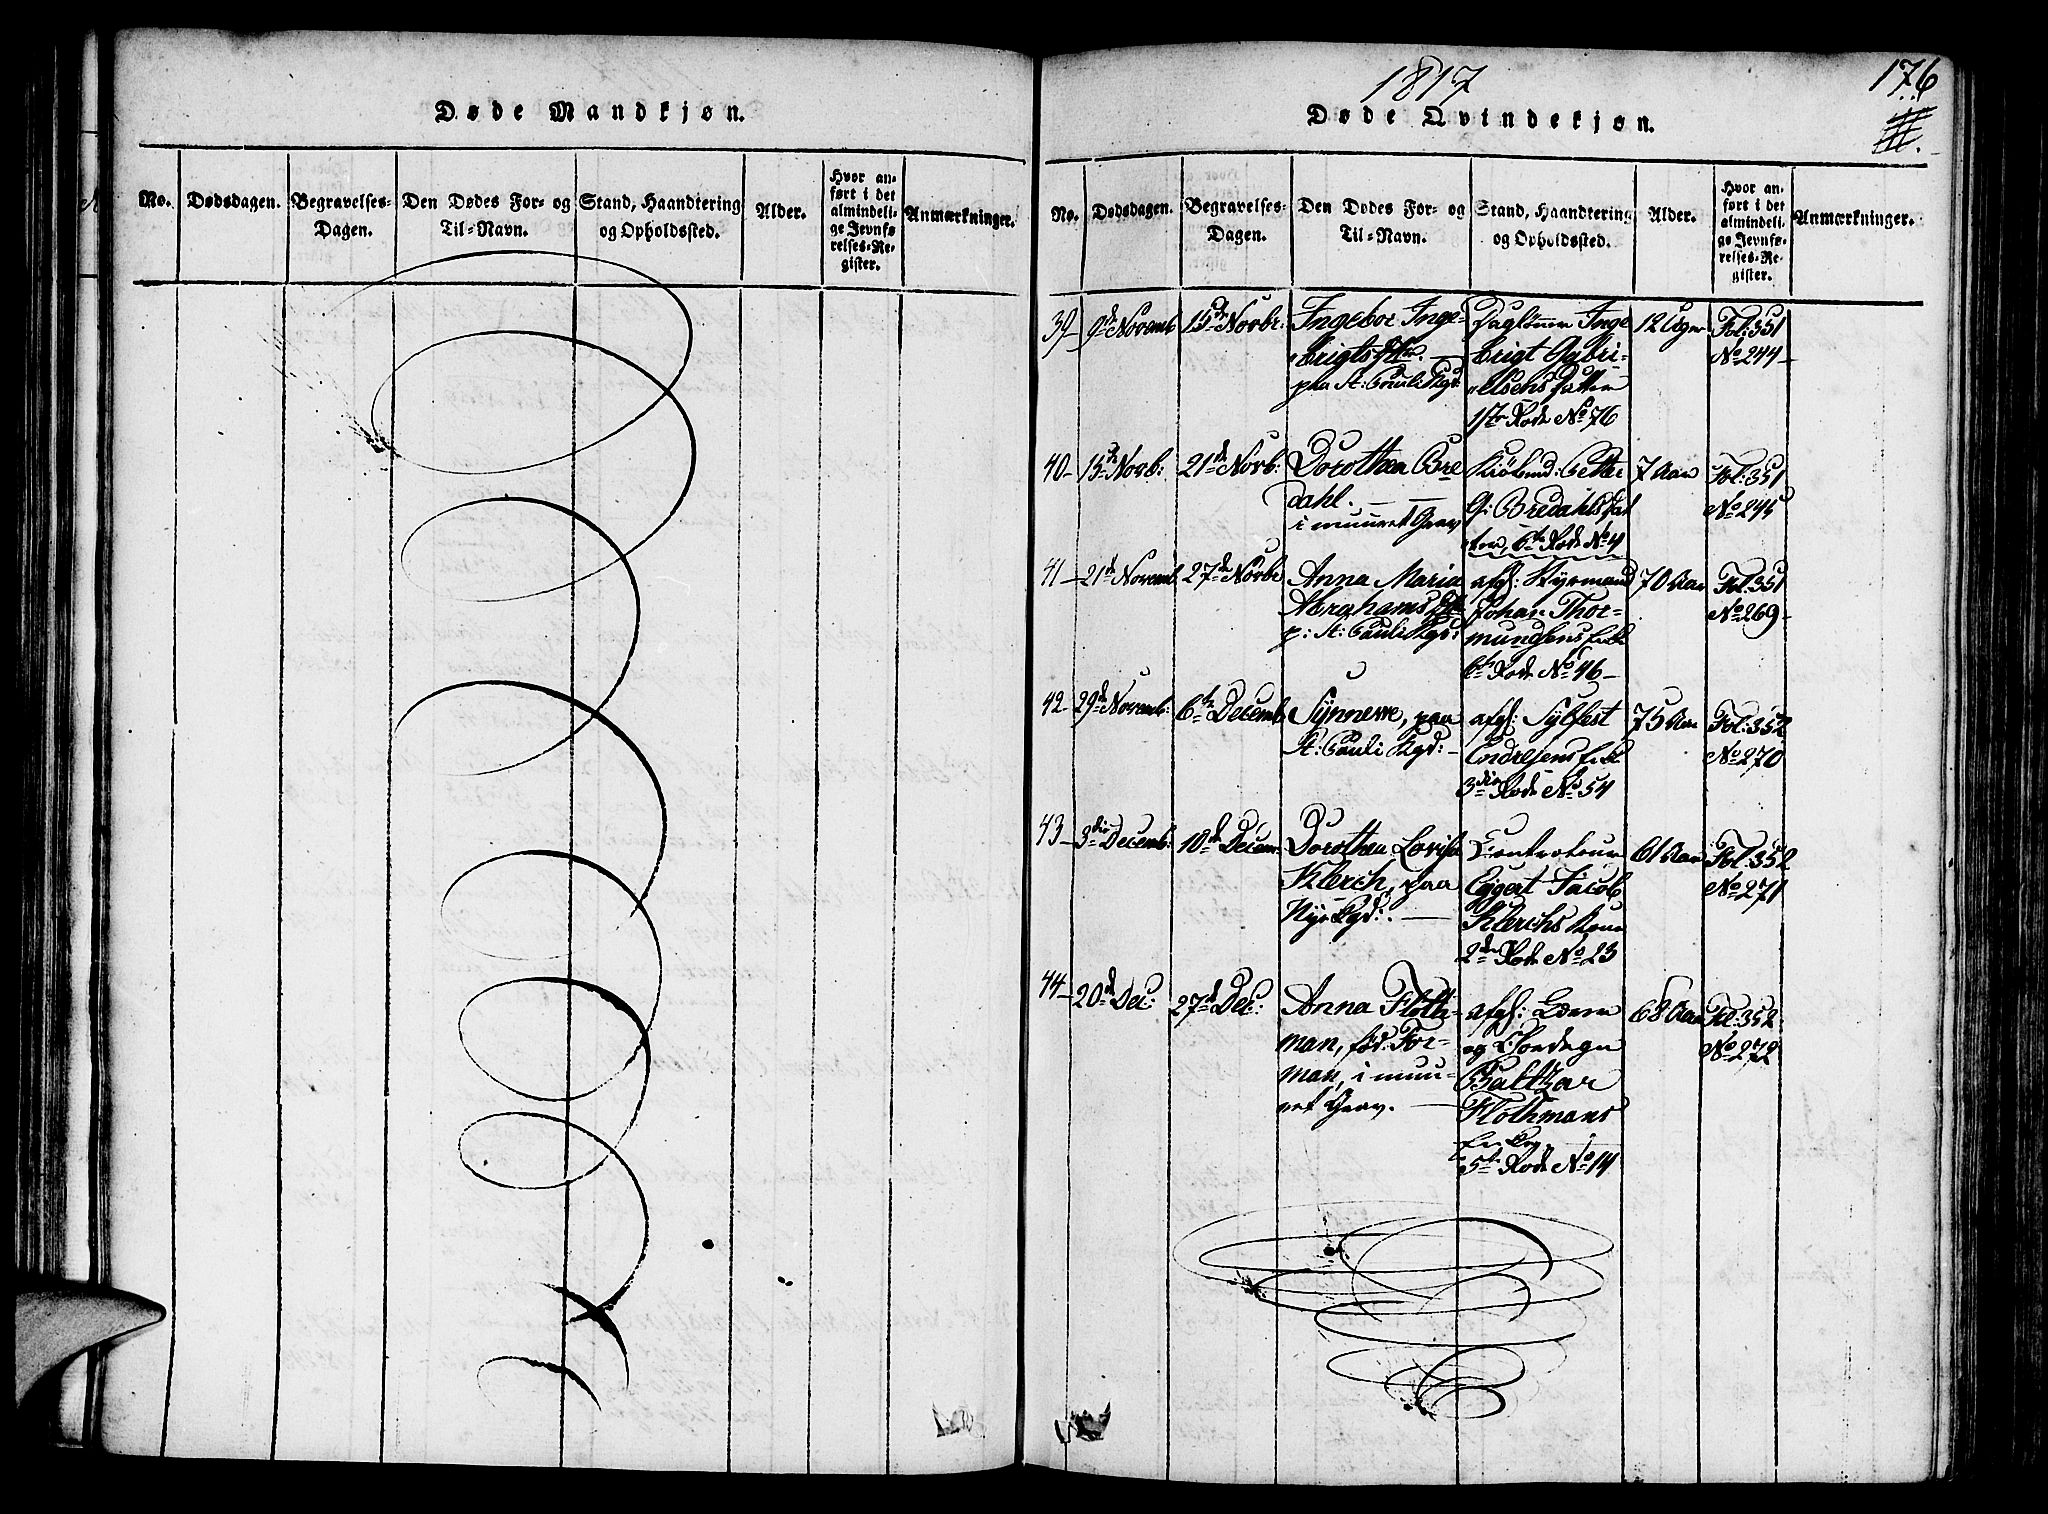 Døde Mandkjøn.
No.
Dødsdagen.
Begravelses-
Dagen.
Den Dødes For- og
Til-Navn.
Stand, Haandtering
og Opholdssted.
Alder.
Hvor an-
ført i det
almindeli-
ge Jevnfø-
relses-Re-
gister.
Anmærkninger.
1817
176
Døde Qvindekjøn.
No.
Dødsdagen.
Begravelses-
Dagen.
Den Dødes For- og
Til-Navn.
Stand, Haandtering
og Opholdssted.
Alder.
Hvor an-
ført i det
almindeli-
ge Jevnfø-
relses-Re-
gister.
Anmærkninger.
39
9de Novemb
15de Novbr.
Ingebor Inge-
brigts
paa St: Pauli Kgd:
Inge
brigt Gabri-
elsens Datter
1ste Rode No 76
12 Uger
Fol: 351
No 244
40
15de Novb:
21de Novb:
Dorothea Bre
dahl.
i muuret Grav
Kiöbmd: Petter
G: Bredahls Dat
ter, 6te Rode No 4
7 Aar
Fol: 351
No 245
41
21de Novemb.
27de Novbr
Anna Maria
Abrahams
p: St: Pauli Kgd:
afg: Styrmand
Johan Thor-
mundsens Enke
6te Rode No 46
70 Aar
Fol: 351
No 269
42
29de Novemb:
6te Decemb.
Synneve, paa
St: Pauli Kgd:
afg: Sylfest
Endresens Enke
3die Rode No 54
75 Aar
Fol: 352
No 270
43
3die Decemb:
10de Decem:
Dorothea Lovisa
Klerch, paa
Nye Kgd:
Controleur
Eggert Jacob
Klerchs Kone
2den Rode No 23
61 Aar
Fol: 352
No 271
44
20de Dec:
27de Dec:
Anna Floth-
man, fød: For-
man, i muu-
ret Grav.
afg:
og
Balthar
Flothmans
Enke
5te Rode No 14
68 Aar
Fol: 352
No 272